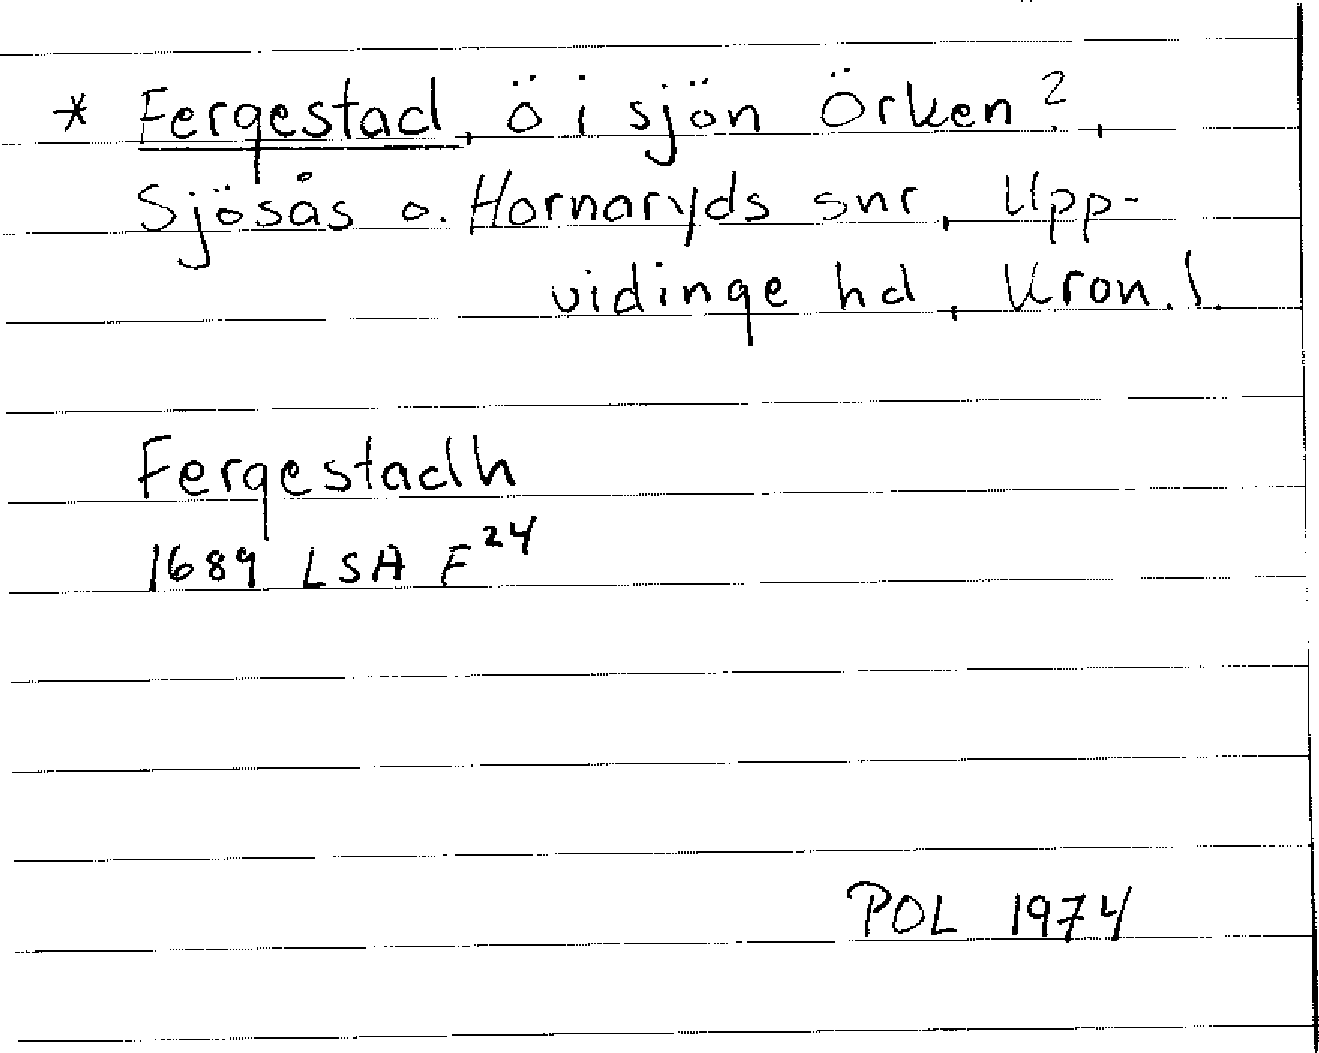 * Fergestad, ö i sjön Örken?,
Sjösås o. Hornaryds snr, Upp-
vidinge hd, Kron. l.
Fergestadh
1689 LSA F 24
POL 1974